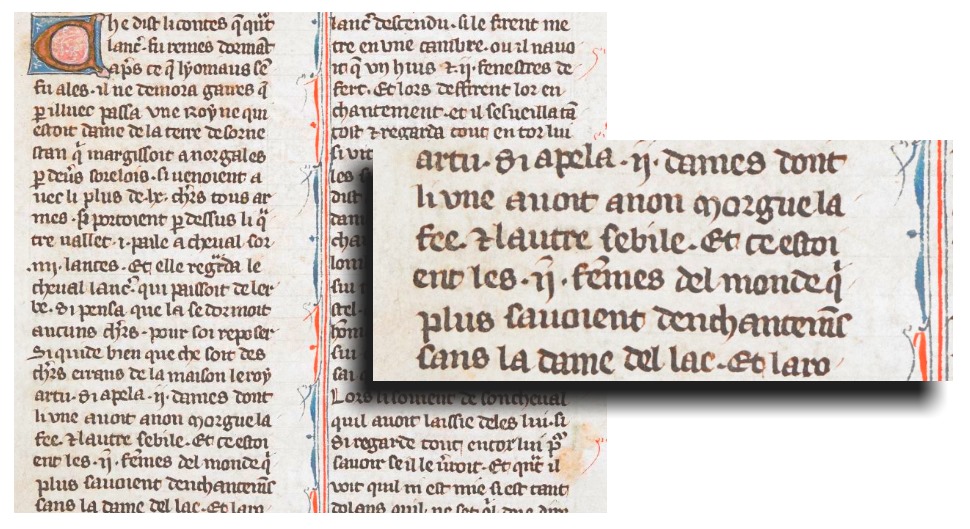 Che dist li contes q̄ qn̄t
lanc̄. fu remes dormāt
aps ce q̄ lyonaus sē
fu ales. il ne demora gaires q̄
p illuec passa vne Roÿne qui
estoit dame de la terre de sorne
stan q̄ margissoit a norgales
p deūs sorelois. si uenoient a
uec li plus de .lx. chr̄s tous ar
mes. si portoient p dessus li q̄
tre uallet .i. paile a cheual sor
.iiij. lances. Et elle regr̄da le
cheual lanc̄. qui paissoit de ler
be. Si pensa que la se dormoit
aucuns chr̄s. pour soi reposer
Si quide bien que che soit des
chr̄s errans de la maison le roÿ
artu. Si apela .ij. dames dont
li vne auoit anon morgue la
fee. ⁊ lautre sebile. Et ce estoi
ent les .ij. fēmes del monde q̄
plus sauoient denchantemēs
sans la dame del lac. Et la ro
lanc̄ descendu. si le firent me
tre en vne cambre. ou il nauo
it q̄ vn huis ⁊ .ij. fenestres de
fert. Et lors deffirent lor en
chantement. et il sesueilla tā
tost ⁊ regarda tout en tor lui
si vit
les
dist
dam
cha
lom
sui
stel
hōm
sui
sai
Lors li souient de son cheual
quil auoit laissie deles lui. si
Si regarde tout entor lui p̄
sauoir se il le uerroit. Et qn̄t il
voit quil ni est mie si est tant
dolans quil ne set q̄l
artu. Si apela .ij. dames dont
li vne auoit anon morgue la
fee. ⁊ lautre sebile. Et ce estoi
ent les .ij. fēmes del monde q̄
plus sauoient denchantemēs
sans la dame del lac. Et la ro